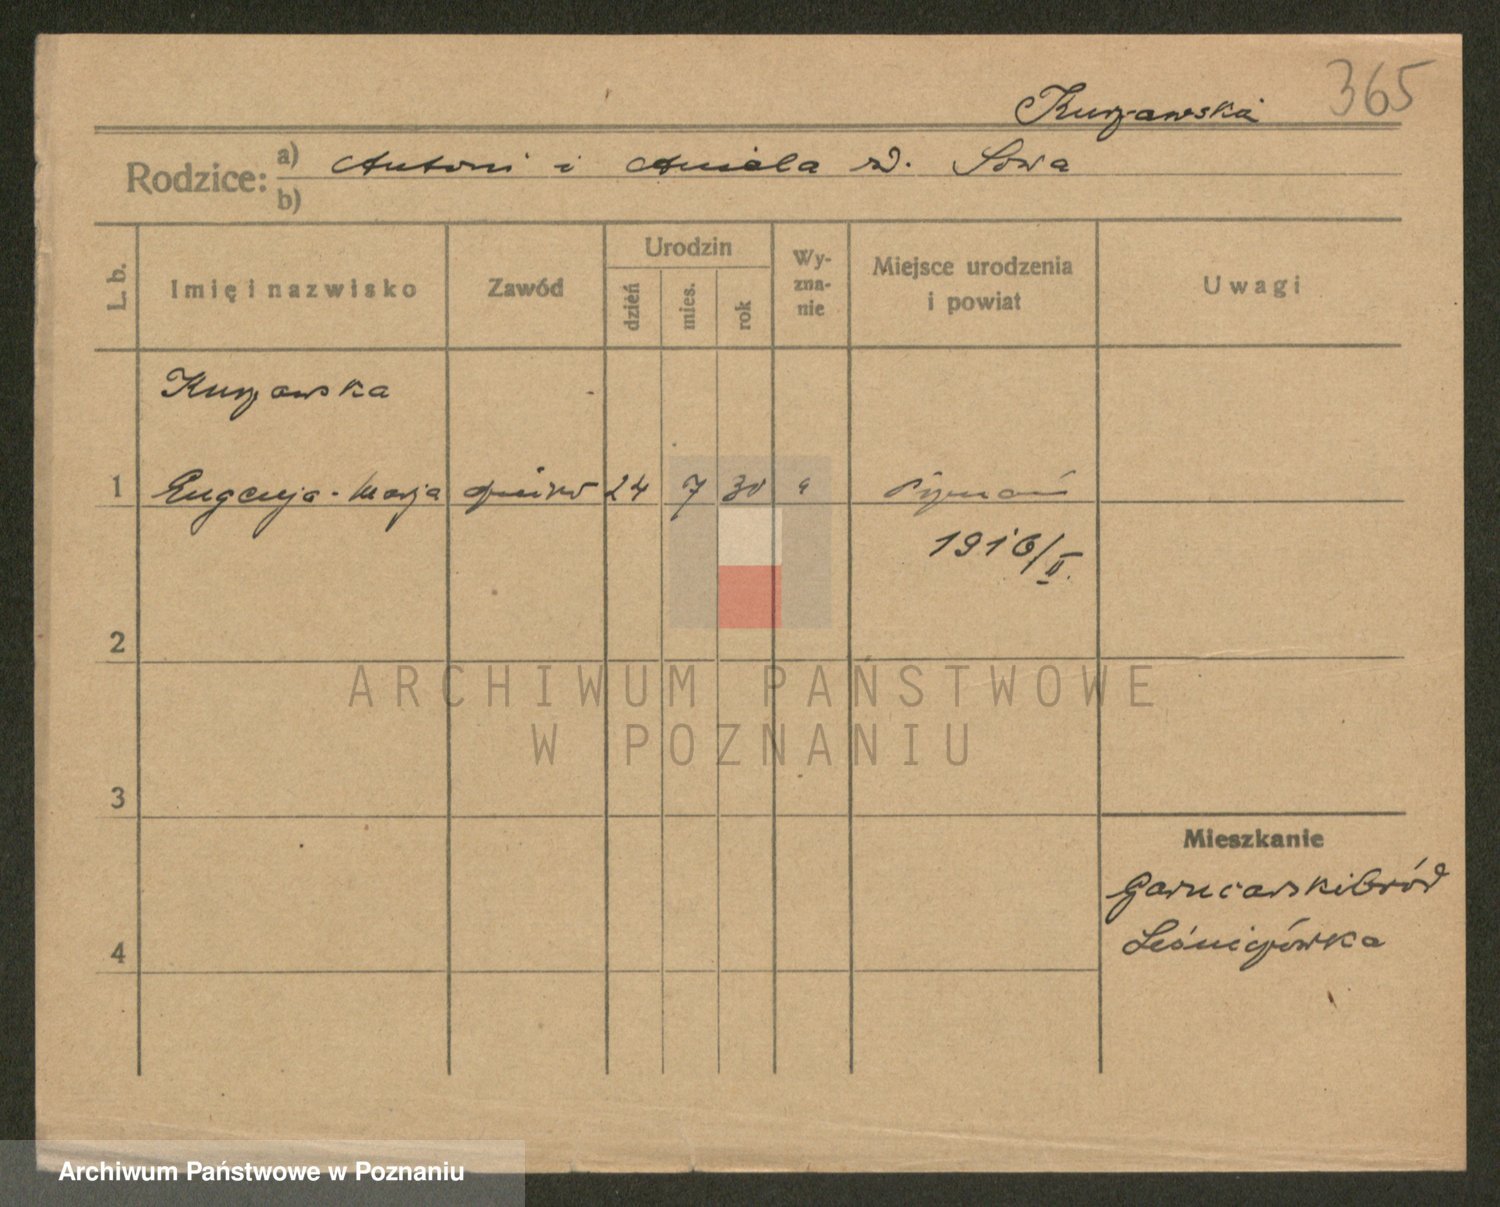 365
Kurzawska
Rodzice: a) Antoni i Aniela zd. Sowa
b)
L. b.
Imię i nazwisko
Zawód
Urodzin
dzień
mies.
rok
Wy-
zna-
nie
Miejsce urodzenia
i powiat
Uwagi
Kurzawska
1 Eugenja-Marja 24 7 30 Poznań
1916/II.
2
3
4
Mieszkanie
Garncarskibród
Leśnigówka
ARCHIWUM PAŃSTWOWE
W POZNANIU
Archiwum Państwowe w Poznaniu